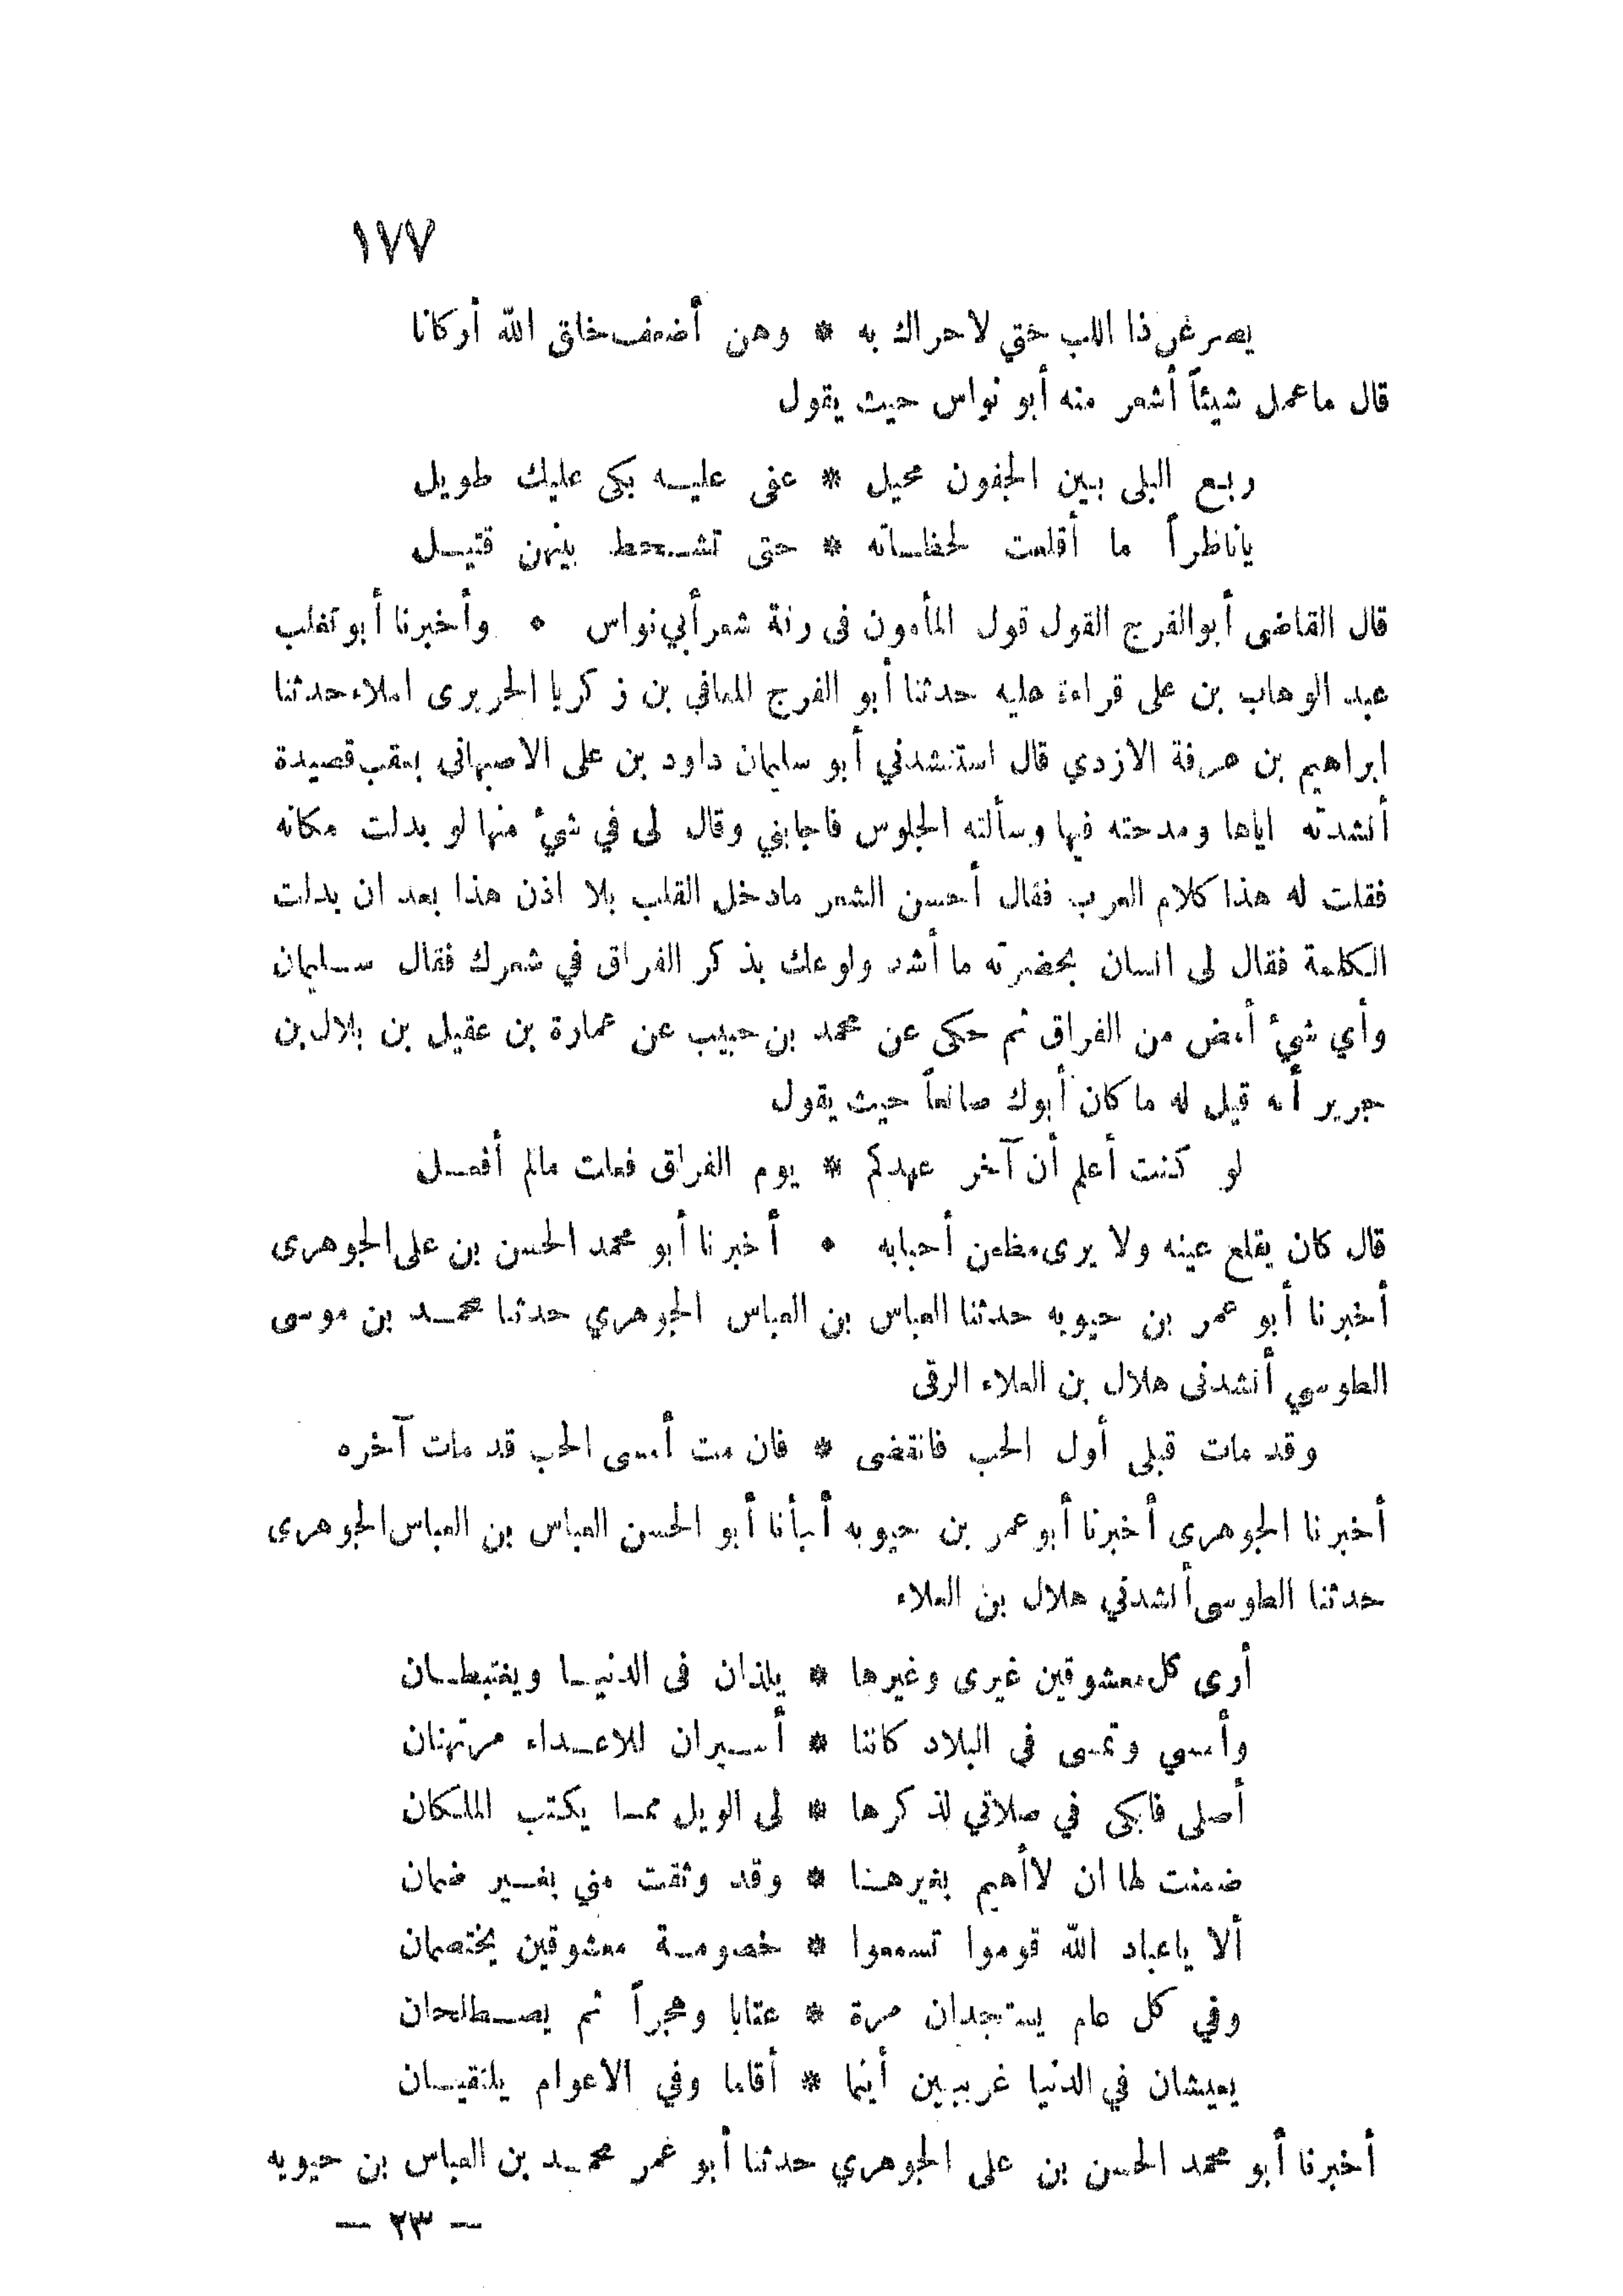 ١٧٧
يصرعن ذا اللب حتي لا حراك به * وهن أضعف خلق الله أركانا
قال ما عمل شيئاً أشعر منه أبو نواس حيث يقول
ربع البلى بين الجفون محيل * عفى عليه بكى عليك طويل
يا ناظراً ما أقلعت لحظاته * حتى تشحط بينهن قتيل
قال القاضى أبو الفرج القول قول المأمون فى رنة شعر أبي نواس • وأخبرنا أبو تغلب
عبد الوهاب بن على قراءة عليه حدثنا أبو الفرج المعافي بن زكريا الحريرى املاء حدثنا
ابراهيم بن عرفة الازدي قال استنشدني أبو سليمان داود بن على الاصبهانى بعقب قصيدة
أنشدته اياها ومدحته فيها وسألته الجلوس فاجابني وقال لى في شيء منها لو بدلت مكانه
فقلت له هذا كلام العرب فقال أحسن الشعر مادخل القلب بلا اذن هذا بعد ان بدلت
الكلمة فقال لى انسان بحضرته ما أشد ولوعك بذكر الفراق في شعرك فقال سليمان
وأي شيء أمض من الفراق ثم حكى عن محمد بن حبيب عن عمارة بن عقيل بن بلال بن
جرير أنه قيل له ما كان أبوك صانعاً حيث يقول
لو كنت أعلم أن آخر عهدكم * يوم الفراق فعلت مالم أفعل
قال كان يقلع عينه ولا يرى مظعن أحبابه • أخبرنا أبو محمد الحسن بن على الجوهرى
أخبرنا أبو عمر بن حيويه حدثنا العباس بن العباس الجوهري حدثنا محمد بن موسى
الطوسي أنشدنى هلال بن العلاء الرقى
وقد مات قبلى أول الحب فانقضى * فان مت أمسى الحب قد مات آخره
أخبرنا الجوهرى أخبرنا أبو عمر بن حيويه أنبأنا أبو الحسن العباس بن العباس الجوهرى
حدثنا الطوسى أنشدني هلال بن العلاء
أرى كل معشوقين غيرى وغيرها * يلذان فى الدنيا ويغتبطان
وأمسي وتمسى في البلاد كاننا * أسيران للاعداء مرتهنان
أصلى فابكى في صلاتي لذكرها * لى الويل مما يكتب الملكان
ضمنت لها ان لا أهيم بغيرها * وقد وثقت مني بغير ضمان
ألا يا عباد الله قوموا تسمعوا * خصومة معشوقين يختصمان
وفي كل عام يستجدان مرة * عتابا وهجراً ثم يصطلحان
يعيشان في الدنيا غريبين أينما * أقاما وفي الاعوام يلتقيان
أخبرنا أبو محمد الحسن بن على الجوهري حدثنا أبو عمر محمد بن العباس بن حيويه
— ٢٣ —